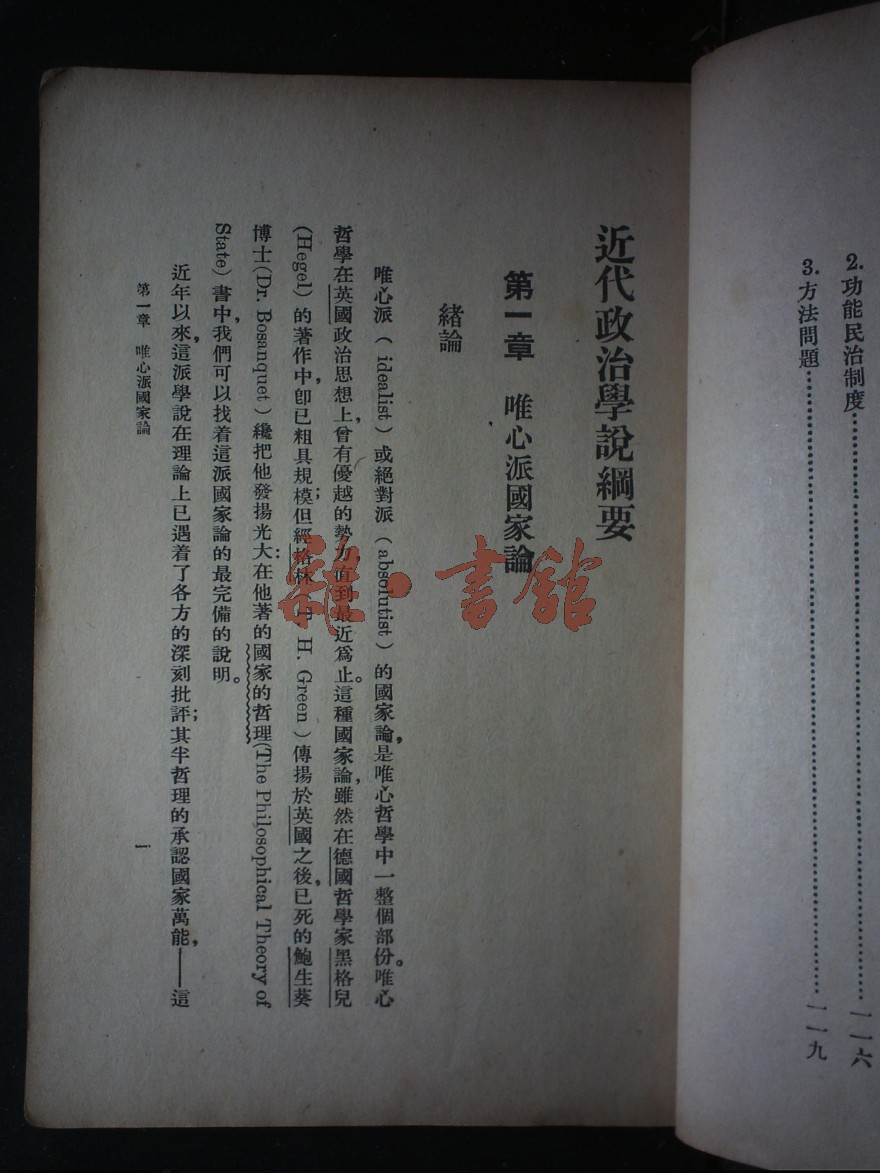 2. 功能民治制度……一一六
3. 方法問題……一一九
近代政治學說綱要
第一章 唯心派國家論
緒論
唯心派（idealist）或絕對派（absolutist）的國家論，是唯心哲學中一整個部份。唯心
哲學在英國政治思想上，曾有優越的勢力，直到最近爲止。這種國家論，雖然在德國哲學家黑格兒
(Hegel）的著作中，卽已粗具規模；但經格林（T. H. Green）傳揚於英國之後，已死的鮑生葵
博士(Dr. Bosanquet）纔把他發揚光大：在他著的國家的哲理(The Philosophical Theory of
State）書中，我們可以找着這派國家論的最完備的說明。
近年以來，這派學說在理論上已遇着了各方的深刻批評；其半哲理的承認國家萬能，——這
第一章 唯心派國家論 一
雜·書館